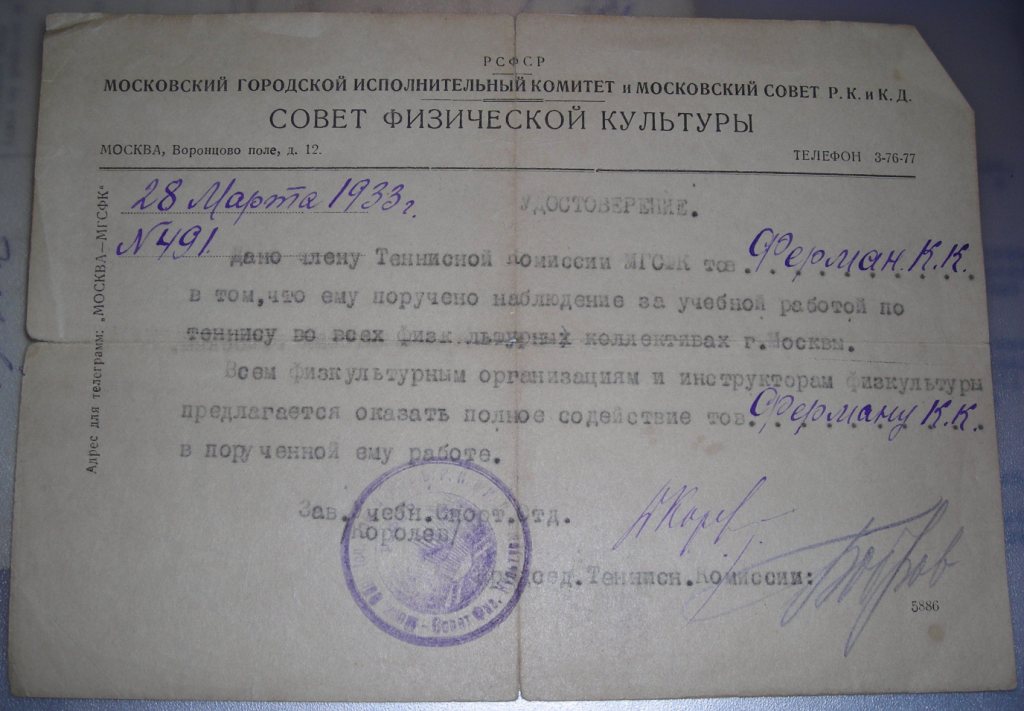 РСФСР
МОСКОВСКИЙ ГОРОДСКОЙ ИСПОЛНИТЕЛЬНЫЙ КОМИТЕТ и МОСКОВСКИЙ СОВЕТ Р. К. и К. Д.
СОВЕТ ФИЗИЧЕСКОЙ КУЛЬТУРЫ
МОСКВА, Воронцово поле, д. 12.
ТЕЛЕФОН 3-76-77
Адрес для телеграмм: „МОСКВА—МГСФК"
28 Марта 1933 г.
УДОСТОВЕРЕНИЕ.
N 491.
Дано члену Теннисной Комиссии МГСФК тов. Ферман. К.К.
в том,что ему поручено наблюдение за учебной работой по
теннису во всех физкультурных коллективах г.Москвы.
Всем физкультурным организациям и инструкторам физкультуры
предлагается оказать полное содействие тов. Ферману К.К.
в порученной ему работе.
Зав.Учебн.Спорт.Отд.
/Королев/
Председ.Теннисн.Комиссии:
Совет Физ. Культуры
5886